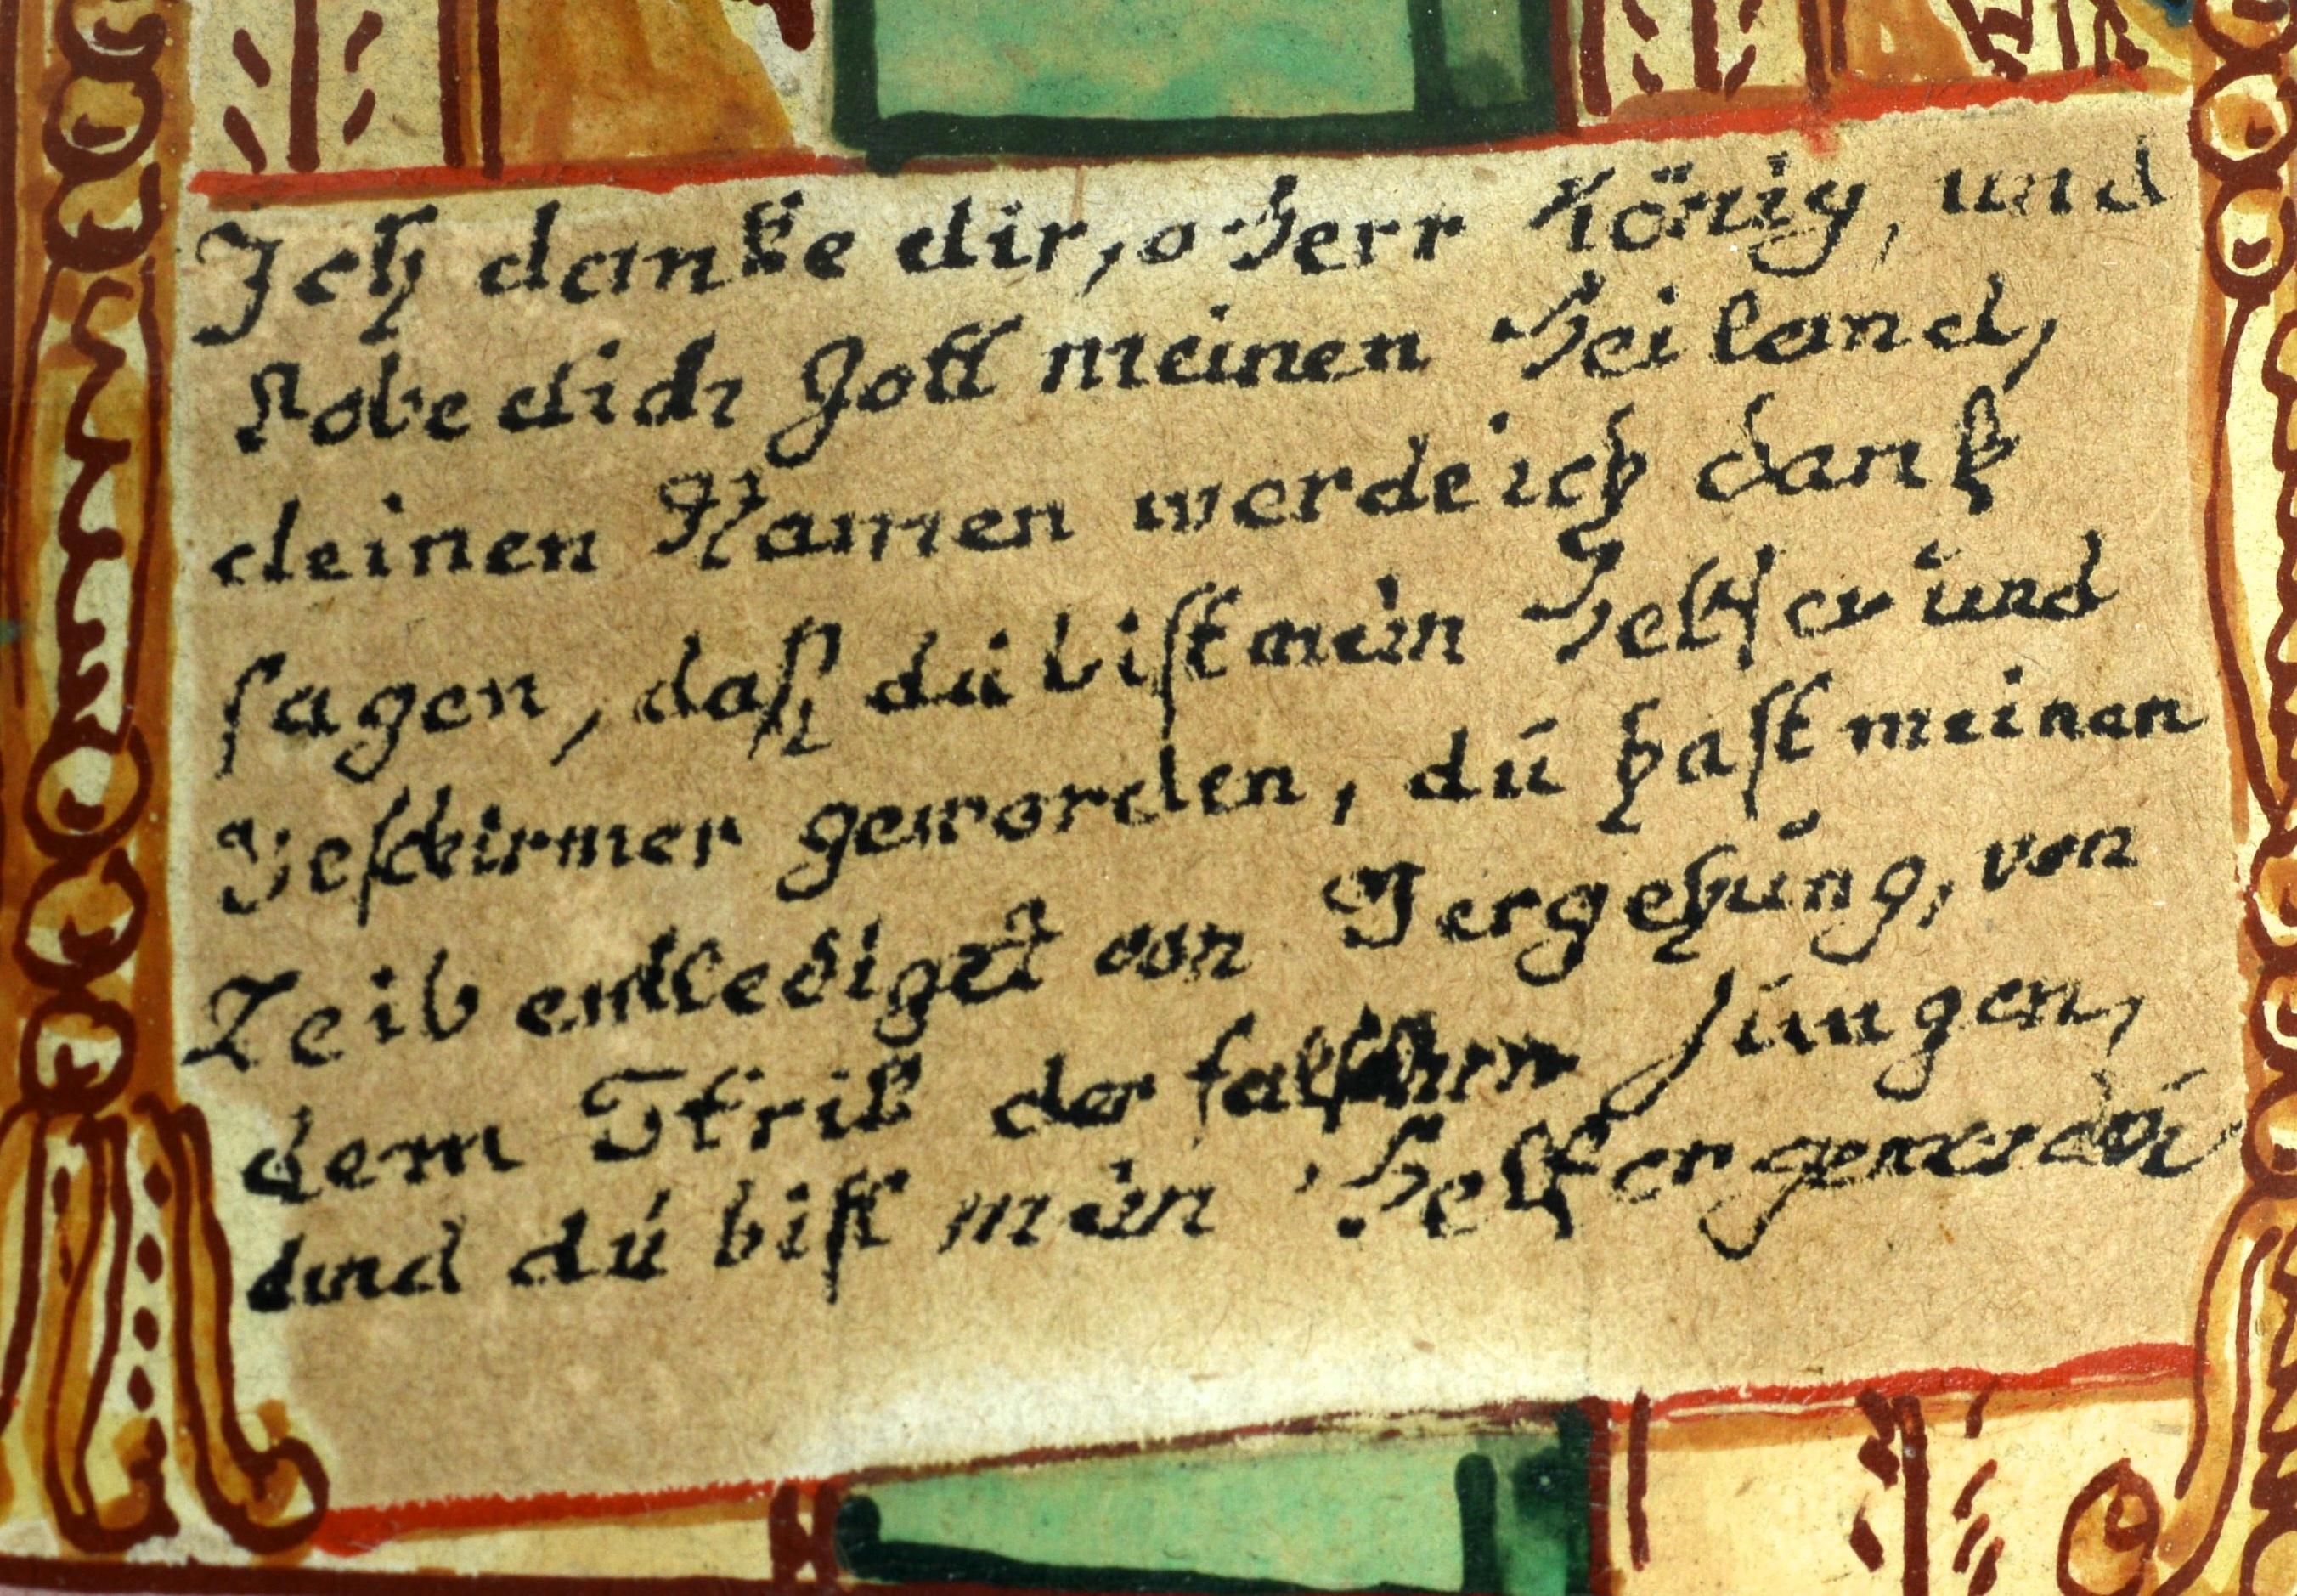 Ich danke dir, o Herr König, und
Lobe dich Gott meinen Heiland,
deinen Namen werde ich dank
sagen, daß dú bist mein Helfer únd
Beschirmer geworden, dú hast meinen
Leib entlediget von Vergehúng, von
dem Strik der falschen Zúngen,
únd dú bist mein Helfer geworden